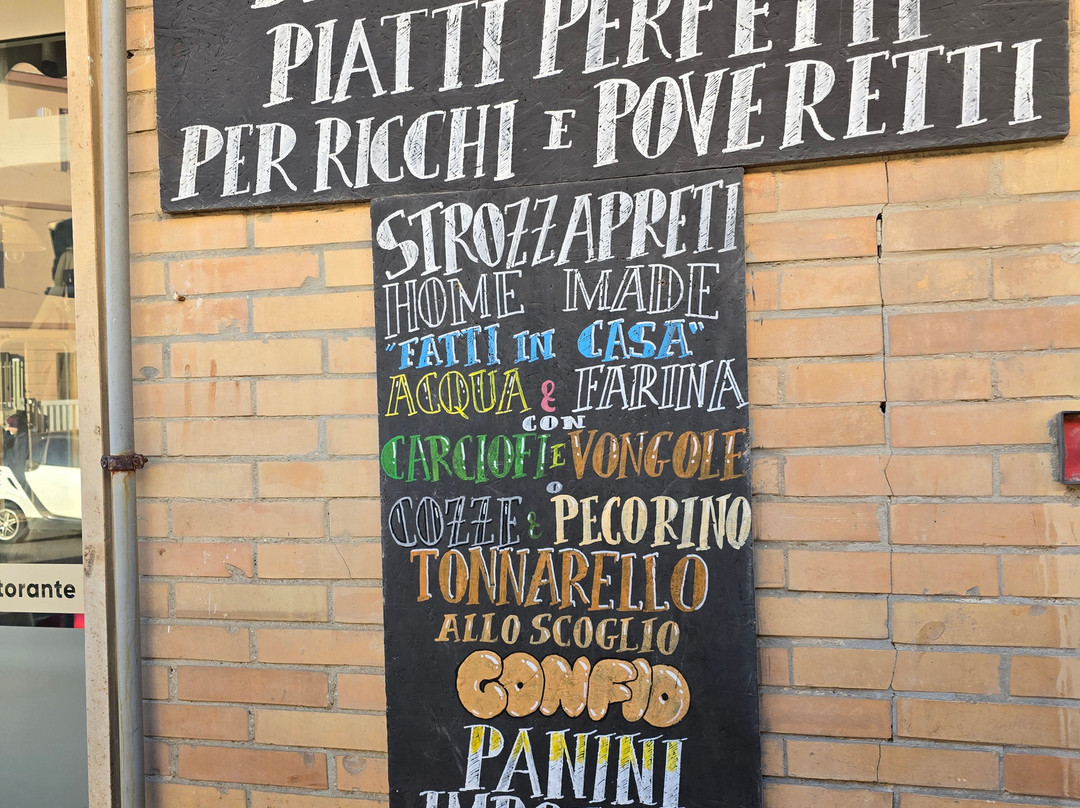 PIATTI PERFETTI
PER RICCHI E POVERETTI
STROZZAPRETI
HOME MADE
"FATTI IN CASA"
ACQUA & FARINA
CON
CARCIOFI E VONGOLE
O
COZZE & PECORINO
TONNARELLO
ALLO SCOGLIO
GONFIO
PANINI
torante